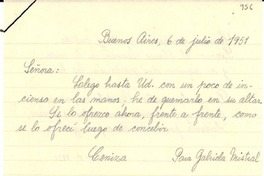 956
Buenos Aires, 6 de julio de 1951
Señora:
Salego hasta Ud. con un poco de in-
ciensa en las manos; he de quemarlo en su altar.
Se lo ofrezco ahora, frente a frente, como
se lo ofrecí luego de concebir
Ceniza Para Gabriela Mistral